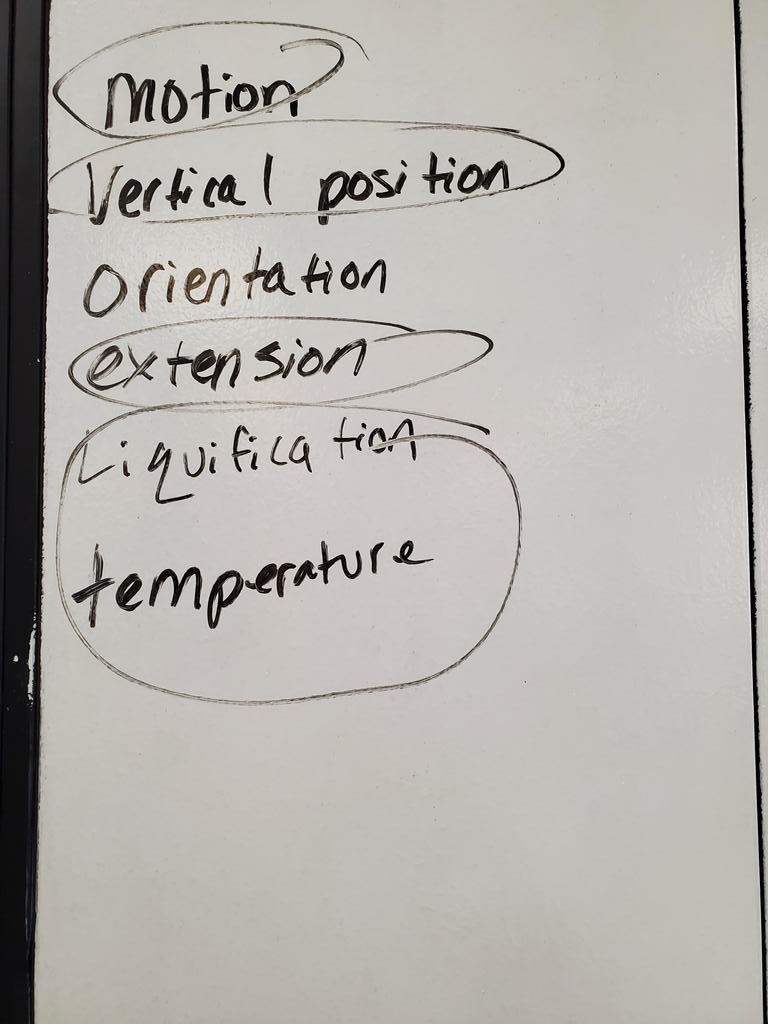 Motion
Vertical position
Orientation
extension
Liquification
temperature